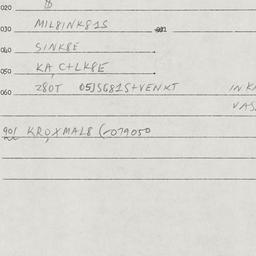 020
030 MIL8INK81S
040 SINK8E
050 KA,C+LK8E
060 280T 05JSG81S+VENKT INK
VAS
90/ KROXMAL8 (-079050